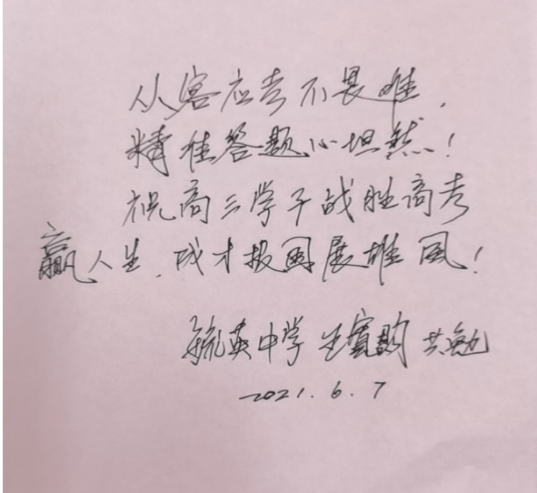 从容应考不畏难,
精准答题心坦然!
祝高三学子战胜高考
赢人生,成才报国展雄风!
毓英中学 共勉
2021.6.7